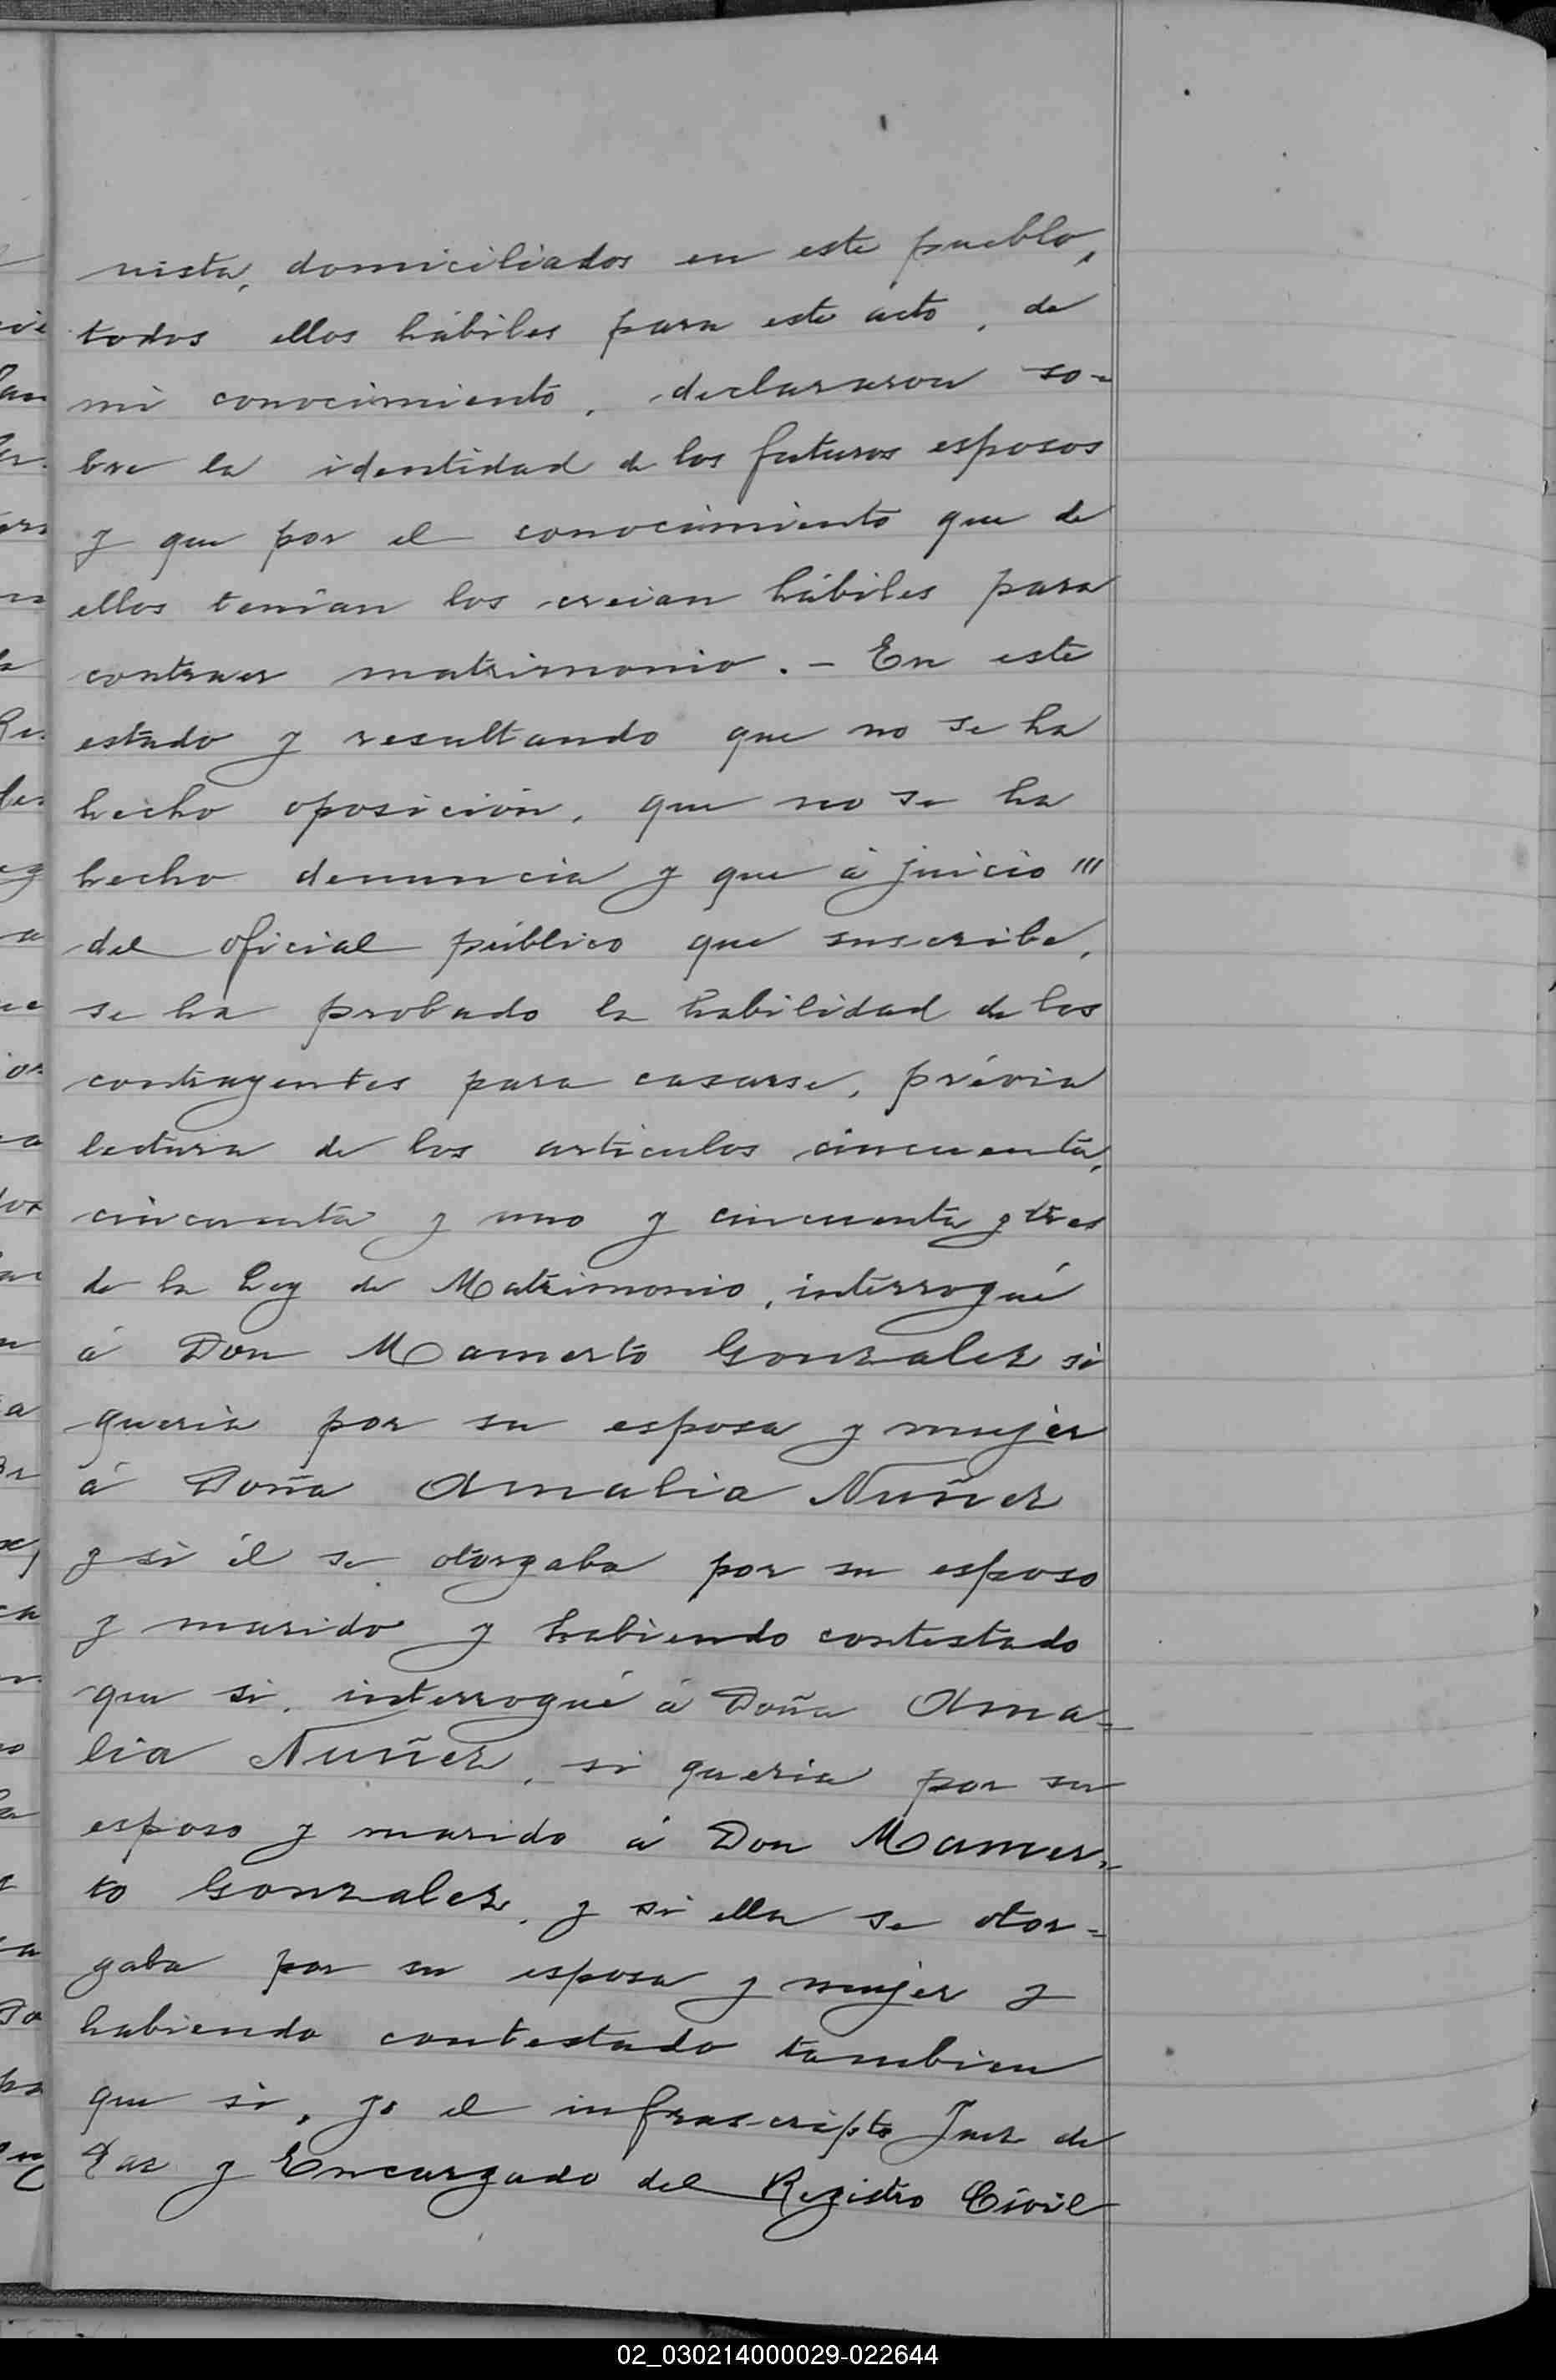 nista, domiciliados en este pueblo,
todos ellos hábiles para este acto, de
mi conocimiento, declararon so-
bre la identidad de los futuros esposos
y que por el conocimiento que de
ellos tenían los creian hábiles para
contraer matrimonio. - En este
estado y resultando que no se ha
hecho oposición, que no se ha
hecho denuncia y que á juicio "'
del oficial público que suscribe,
se ha probado la habilidad de los
contrayentes para casarse, prévia
lectura de los artículos cincuenta,
cincuenta y uno y cincuenta y tres
de la Ley de Matrimonio, interrogué
á Don Mamerto Gonzalez si
queria por su esposa y mujer
á Doña Amalia Nuñez
y si él se otorgaba por su esposo
y marido y habiendo contestado
que si, interrogué á Doña Ama-
lia Nuñez, si queria por su
esposo y marido á Don Mamer-
to Gonzalez, y si ella se otor=
gaba por su esposa y mujer y
habiendo contestado tambien
que si, yo el infrascripto Juez de
Paz y Encargado del Registro Civil
02_030214000029-022644